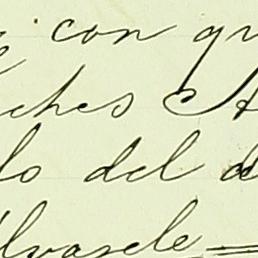 con qu
ches A
lo del d
lvarele